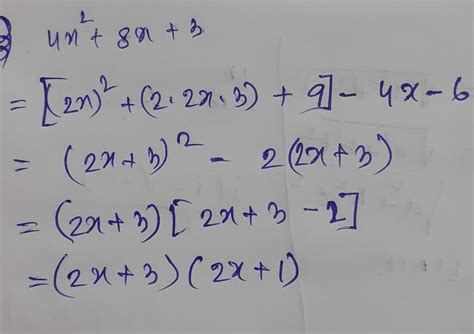 4x² + 8x + 3
= [(2x)² + (2·2x·3) + 9] - 4x - 6
= (2x+3)² - 2(2x+3)
= (2x+3)[2x+3-2]
= (2x+3)(2x+1)